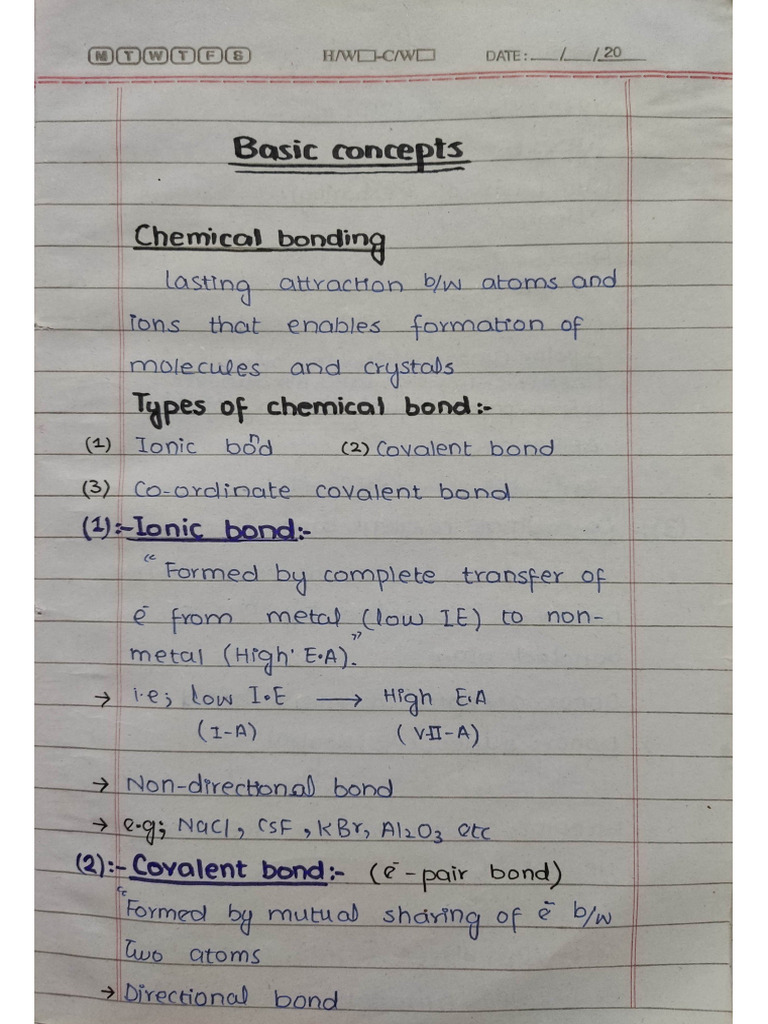 M T W T F S H/W□-C/W□ DATE:___/___/20
Basic concepts
Chemical bonding
lasting attraction b/w atoms and
ions that enables formation of
molecules and crystals
Types of chemical bond:-
(1) Ionic bond (2) Covalent bond
(3) Co-ordinate covalent bond
(1):- Ionic bond:-
"Formed by complete transfer of
ē from metal (low IE) to non-
metal (High E.A)".
→ i.e; low I.E ⟶ High E.A
(I-A) (VII-A)
→ Non-directional bond
→ e.g; NaCl, CsF, KBr, Al₂O₃ etc
(2):- Covalent bond:- (ē-pair bond)
"Formed by mutual sharing of ē b/w
Two atoms
→ Directional bond